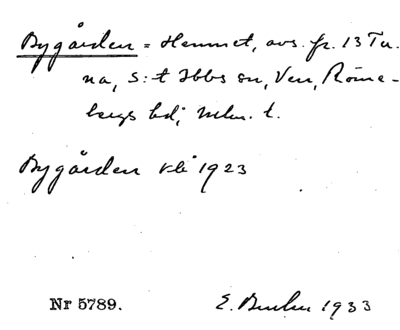 Bygården = Hemmet, avs. fr. 13 Tu-
na, S:t Ibbs sn, Ven, Röne-
bergs hd, Mlm. l.
Bygården 1923
Nr 5789.
E. 1933